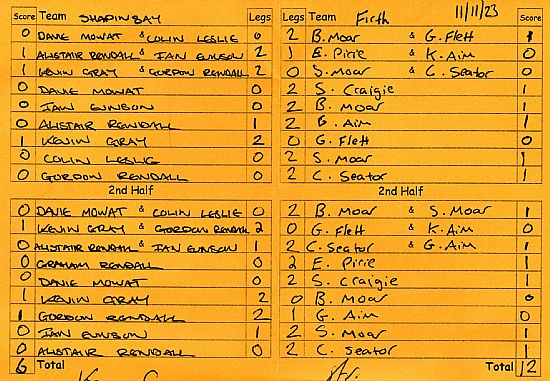 Score Team SHAPINSAY Legs Legs Team Firth 11/11/23 Score
0 DAVE MOWAT & COLIN LESLIE 0 2 B. Moar & G. Flett 1
1 ALISTAIR RENDALL & IAN EUNSON 2 1 E. Pirie & K. Aim 0
1 KEVIN GRAY & GORDON RENDALL 2 0 S. Moar & C. Seator 0
0 DAVE MOWAT 0 2 S. Craigie 1
0 IAN EUNSON 0 2 B. Moar 1
0 ALISTAIR RENDALL 1 2 G. Aim 1
1 KEVIN GRAY 2 0 G. Flett 0
0 COLIN LESLIE 0 2 S. Moar 1
0 GORDON RENDALL 0 2 C. Seator 1
2nd Half 2nd Half
0 DAVIE MOWAT & COLIN LESLIE 0 2 B. Moar & S. Moar 1
1 KEVIN GRAY & GORDON RENDALL 2 0 G. Flett & K. Aim 0
0 ALISTAIR RENDALL & IAN EUNSON 1 2 C. Seator & G. Aim 1
0 GRAHAM RENDALL 0 2 E. Pirie 1
0 DAVE MOWAT 0 2 S. Craigie 1
1 KEVIN GRAY 2 0 B. Moar 0
1 GORDON RENDALL 2 1 G. Aim 0
0 IAN EUNSON 1 2 S. Moar 1
0 ALISTAIR RENDALL 0 2 C. Seator 1
6 Total Total 12